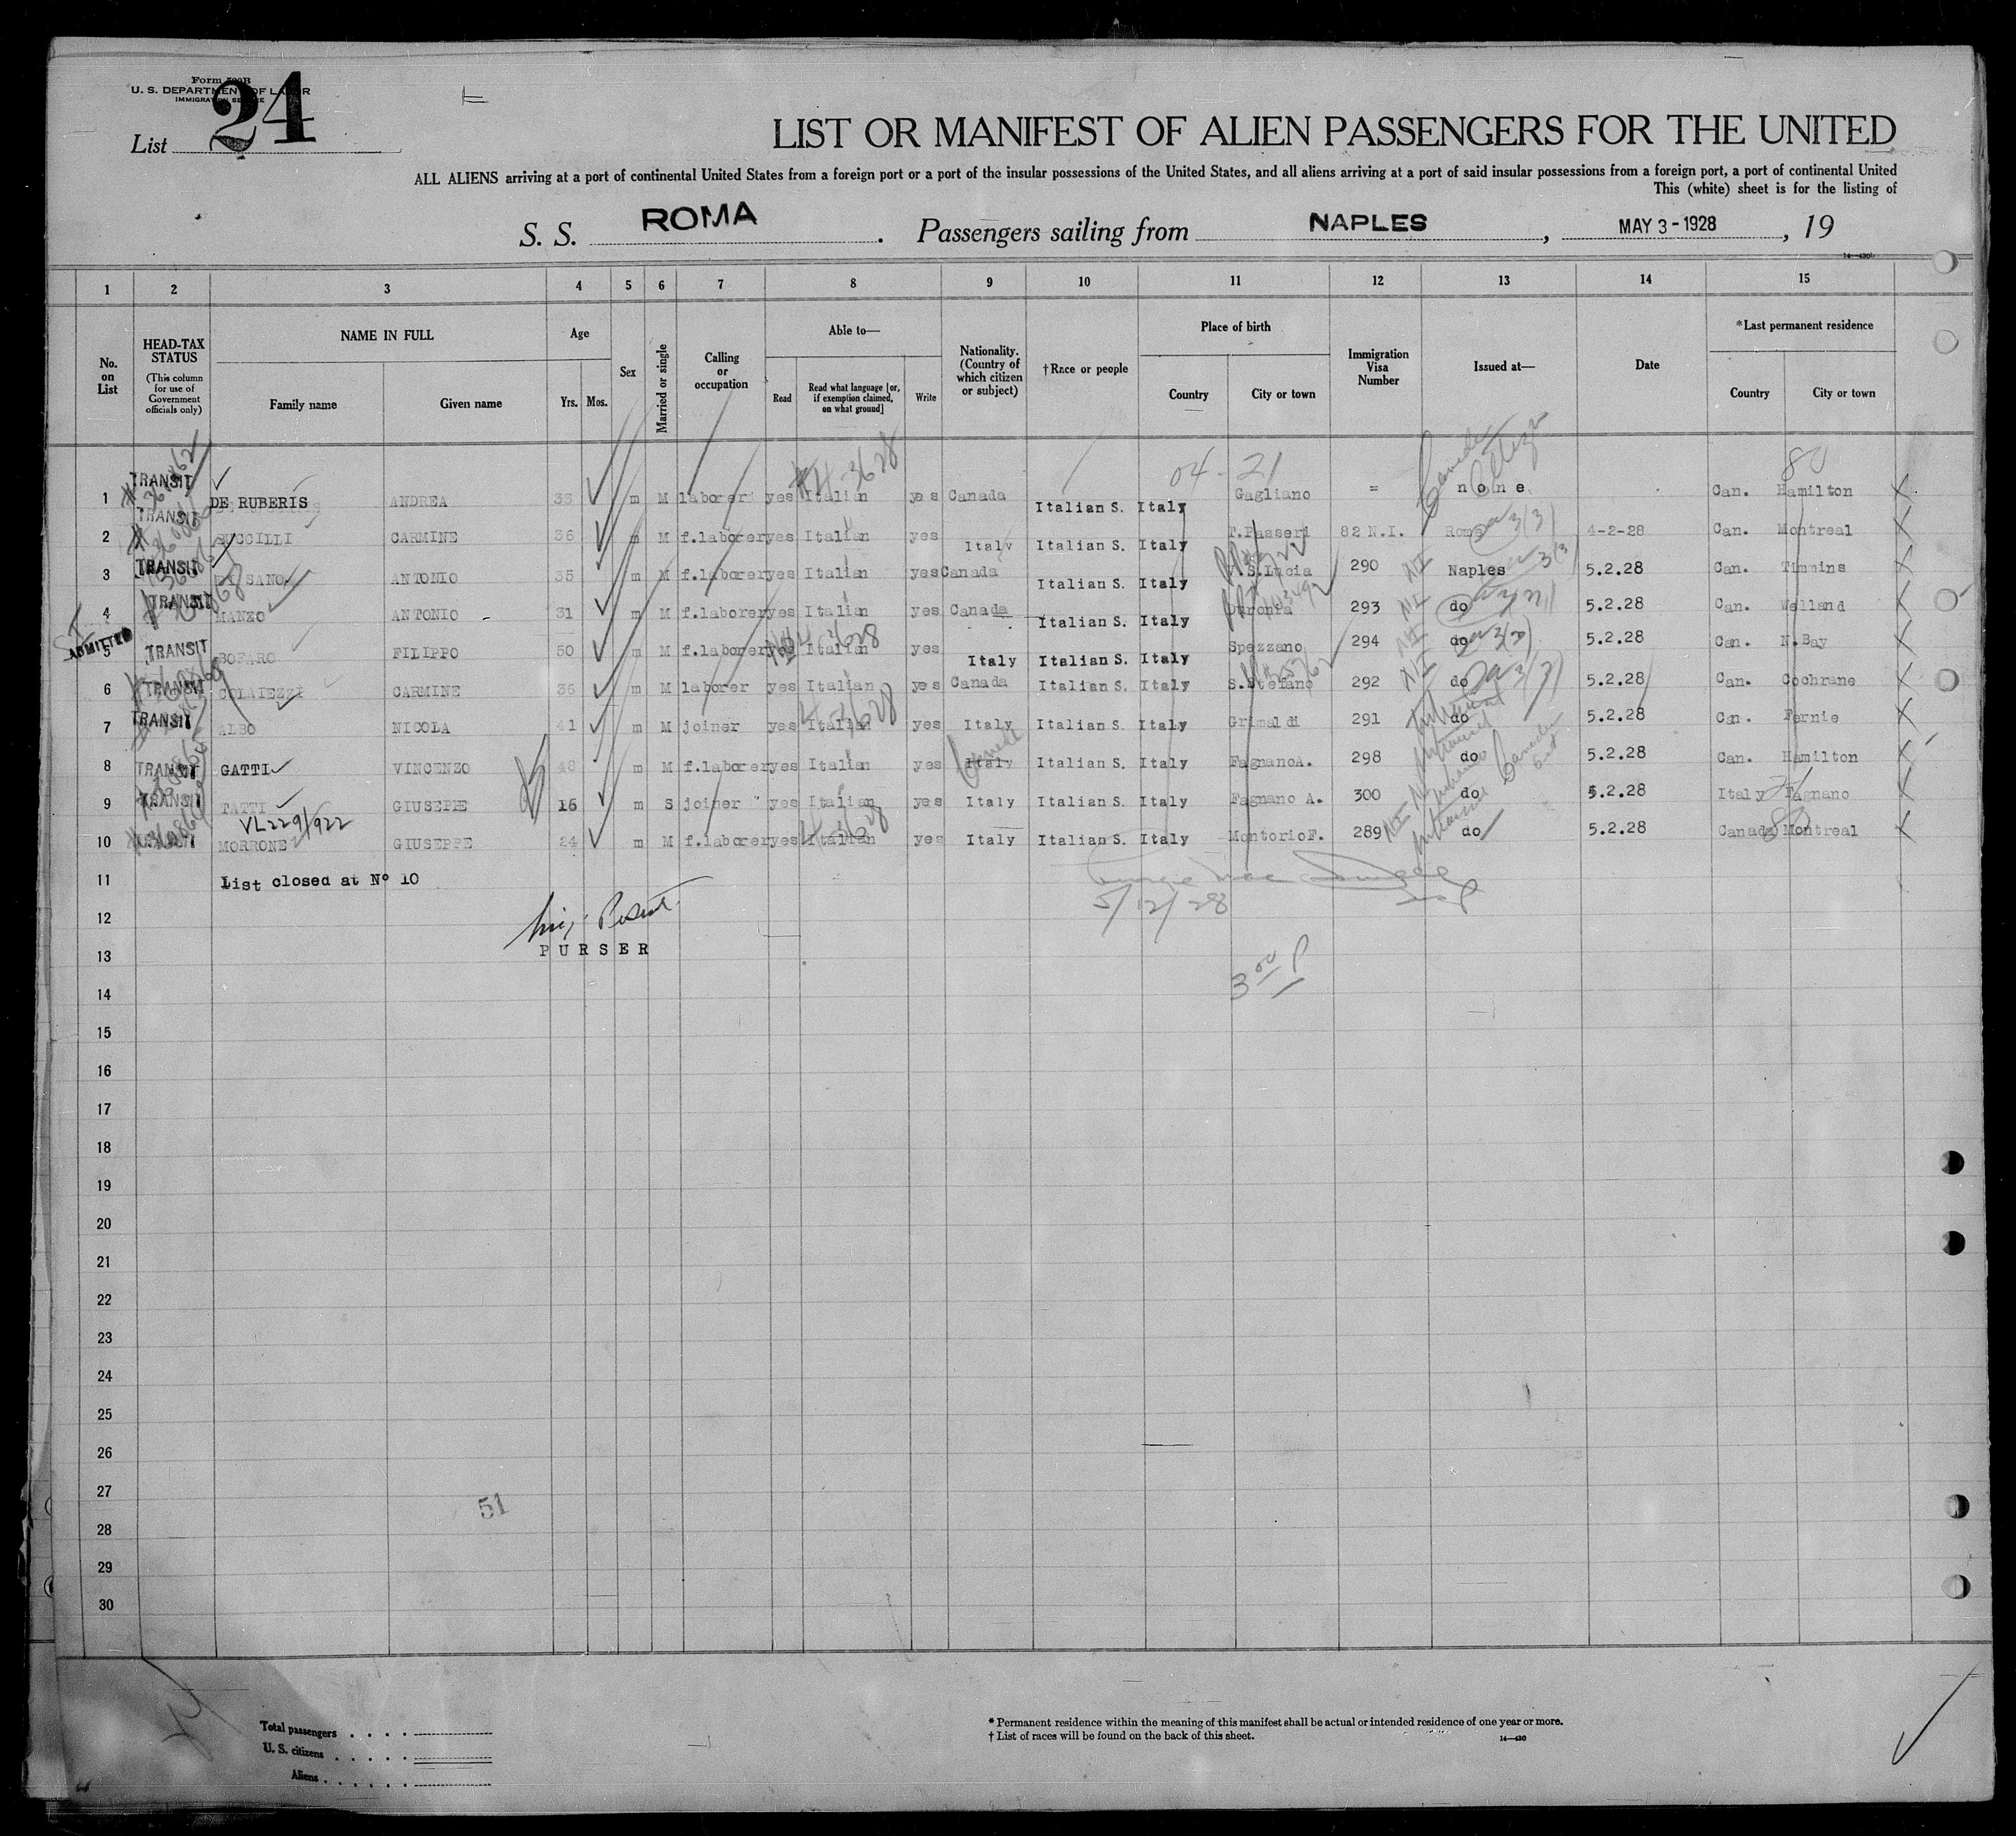 Form 500B
U. S. DEPARTMENT OF LABOR
IMMIGRATION SERVICE
List 24
LIST OR MANIFEST OF ALIEN PASSENGERS FOR THE UNITED
ALL ALIENS arriving at a port of continental United States from a foreign port or a port of the insular possessions of the United States, and all aliens arriving at a port of said insular possessions from a foreign port, a port of continental United
This (white) sheet is for the listing of
S. S. ROMA. Passengers sailing from NAPLES, MAY 3-1928, 19
1 2 3 4 5 6 7 8 9 10 11 12 13 14 15
No. on List
HEAD-TAX STATUS
(This column for use of Government officials only)
NAME IN FULL
Family name Given name
Age
Yrs. Mos.
Sex
Married or single
Calling or occupation
Able to—
Read
Read what language [or, if exemption claimed, on what ground]
Write
Nationality. (Country of which citizen or subject)
†Race or people
Place of birth
Country City or town
Immigration Visa Number
Issued at—
Date
*Last permanent residence
Country City or town
04-21 80
1 TRANSIT DE RUBERIS ANDREA 33 m M laborer yes Italian yes Canada Italian S. Italy Gagliano = none Can. Hamilton X
2 TRANSIT CARMINE 36 m M f.laborer yes Italian yes Italy Italian S. Italy T.Passeri 82 N.I. Rome 4-2-28 Can. Montreal X
3 TRANSIT DI SANO ANTONIO 35 m M f.laborer yes Italian yes Canada Italian S. Italy V.S.Lucia 290 NI Naples 5.2.28 Can. Timmins X
4 TRANSIT MANZO ANTONIO 31 m M f.laborer yes Italian yes Canada Italian S. Italy Duronia 293 NI do 5.2.28 Can. Welland X
ADMITTED
5 TRANSIT BOFARO FILIPPO 50 m M f.laborer yes Italian yes Italy Italian S. Italy Spezzano 294 NI do 5.2.28 Can. N.Bay X
6 TRANSIT COLAIEZZI CARMINE 36 m M laborer yes Italian yes Canada Italian S. Italy S.Stefano 292 NI do 5.2.28 Can. Cochrane X
7 TRANSIT ALBO NICOLA 41 m M joiner yes Italian yes Italy Italian S. Italy Grimaldi 291 do 5.2.28 Can. Fernie X
8 TRANSIT GATTI VINCENZO 48 m M f.laborer yes Italian yes Italy Italian S. Italy FagnanoA. 298 do 5.2.28 Can. Hamilton X
9 TRANSIT TATTI GIUSEPPE 16 m S joiner yes Italian yes Italy Italian S. Italy Fagnano A. 300 do 5.2.28 Italy Fagnano X
VL229/922
10 MORRONE GIUSEPPE 24 m M f.laborer yes Italian yes Italy Italian S. Italy MontorioF. 289 NI do 5.2.28 Canada Montreal X
11 List closed at No 10
5/12/28
12
PURSER
13
3 00 P
14
15
16
17
18
19
20
21
22
23
24
25
26
27
51
28
29
30
Total passengers . . . .
U. S. citizens . . . . .
Aliens . . . . . .
* Permanent residence within the meaning of this manifest shall be actual or intended residence of one year or more.
† List of races will be found on the back of this sheet.
14—430